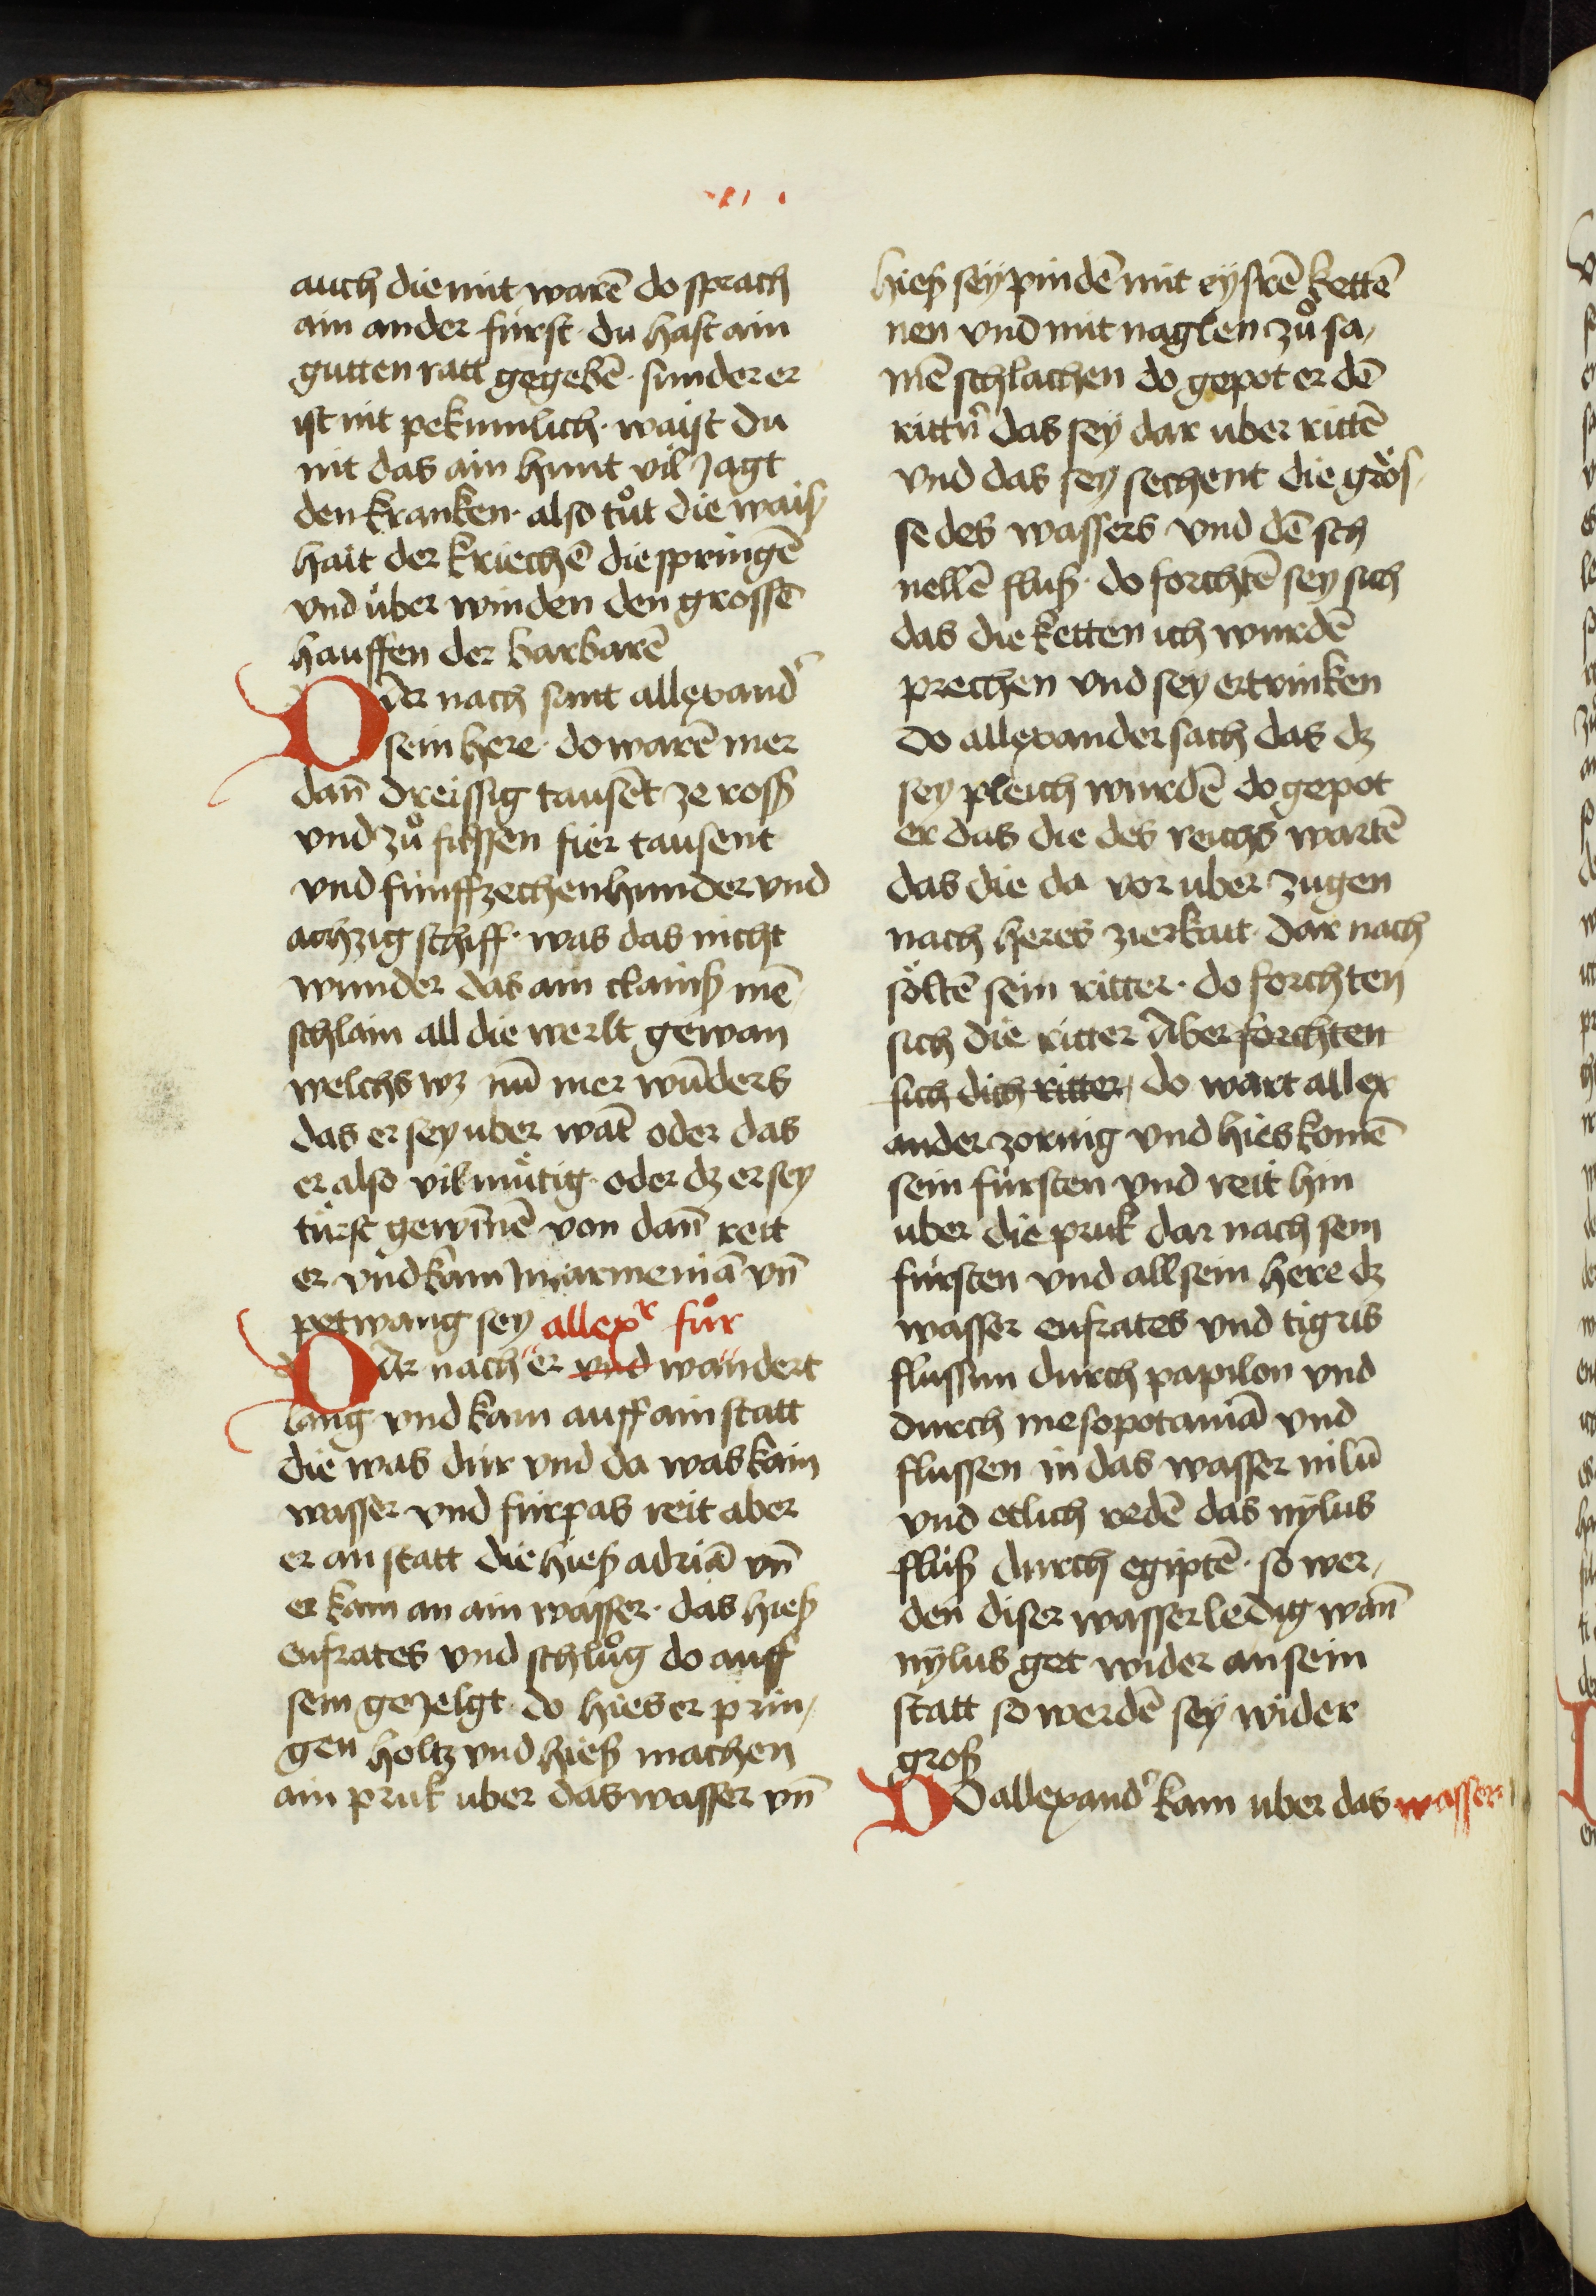 auch die mit warē do sprach
ain ander fürst · du hast ain
gutten ratt gegebē · sunder er
ist nit pekumlich · waist du
nit das ain hunt vil Jagt
den kranken · also tůt die waiß
hait der kriechē die springē
vnd über winden den grossē
hauffen der barbarē
DAr nach samt allexand͛
sein here · do warē mer
dan̄ dreissig tausēt ze roß
vnd zů füssen fier tausent
vnd fünffzechenhunder vnd
achzig schiff · was das nicht
wunder das ain clainß mē
schlain all die werlt gewan
welchs wz nū mer wūders
das er sey uber wāt oder das
er also vil mütig · oder dz er sey
türst gewīnē von dan̄ reit
er vnd kam In armeniā vn̄
petwang sey allexr fůr
DAr nach er vnd wandert
lang vnd kam auff ain statt
die was dür vnd da was kain
wasser vnd fürpas reit aber
er an statt die hieß adriā vn̄
er kam an ain wasser · das hieß
eufrates vnd schlůg do auff
sein gezelgt · do hies er prin,
gen holtz vnd hieß machen
ain pruk uber das wasser vn̄
hieß sey pindē mit eysrē kettē
nen vnd mit naglen zů sa,
mē schlachen do gepot er dē
rittn̄ das sey dar uber rittē
vnd das sey sechent die grös,
se des wassers vnd dē sch
nellē fluß · do forchtē sey sich
das die ketten ich wurdē
prechen vnd sey ertrinken
Do allexander sach das dz
sey pleich wurdē do gepot
er das die des reichs wartē
das die da vor uber zugen
nach heres zierkait · dar nach
söltē sein ritter · do forchten
sich die ritter Aber forchten
sich dich ritter, do wart allex
ander zornig vnd hies komē
sein fürsten vnd reit hin
uber die pruk dar nach sein
fürsten vnd all sein here dz
wasser eufrates vnd tigris
flussun durch papilon vnd
durch mesopotaniā vnd
flussen in das wasser nilū
vnd etlich redē das nylus
fluß durch egiptē · so wer,
den diser wasser ledig wan̄
nylus get wider an sein
statt so werdē sey wider
groß
DO allexand͛ kam uber das wasser